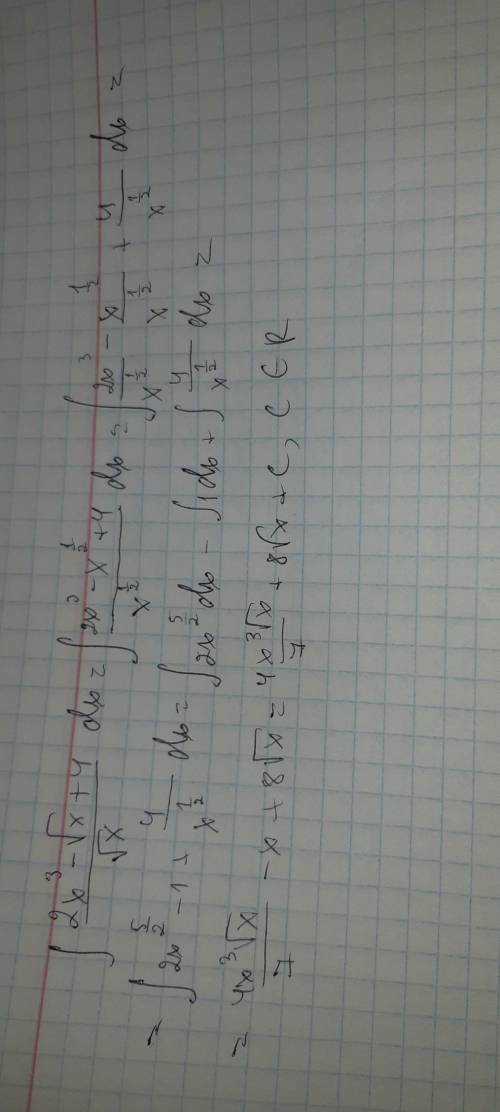 ∫ (2x³ - √x + 4)/√x dx = ∫ (2x³ - x^(1/2) + 4)/x^(1/2) dx = ∫ 2x³/x^(1/2) - x^(1/2)/x^(1/2) + 4/x^(1/2) dx =
= ∫ 2x^(5/2) - 1 + 4/x^(1/2) dx = ∫ 2x^(5/2) dx - ∫ 1 dx + ∫ 4/x^(1/2) dx =
= 4x³√x/7 - x + 8√x = 4x³√x/7 + 8√x + C, C ∈ R